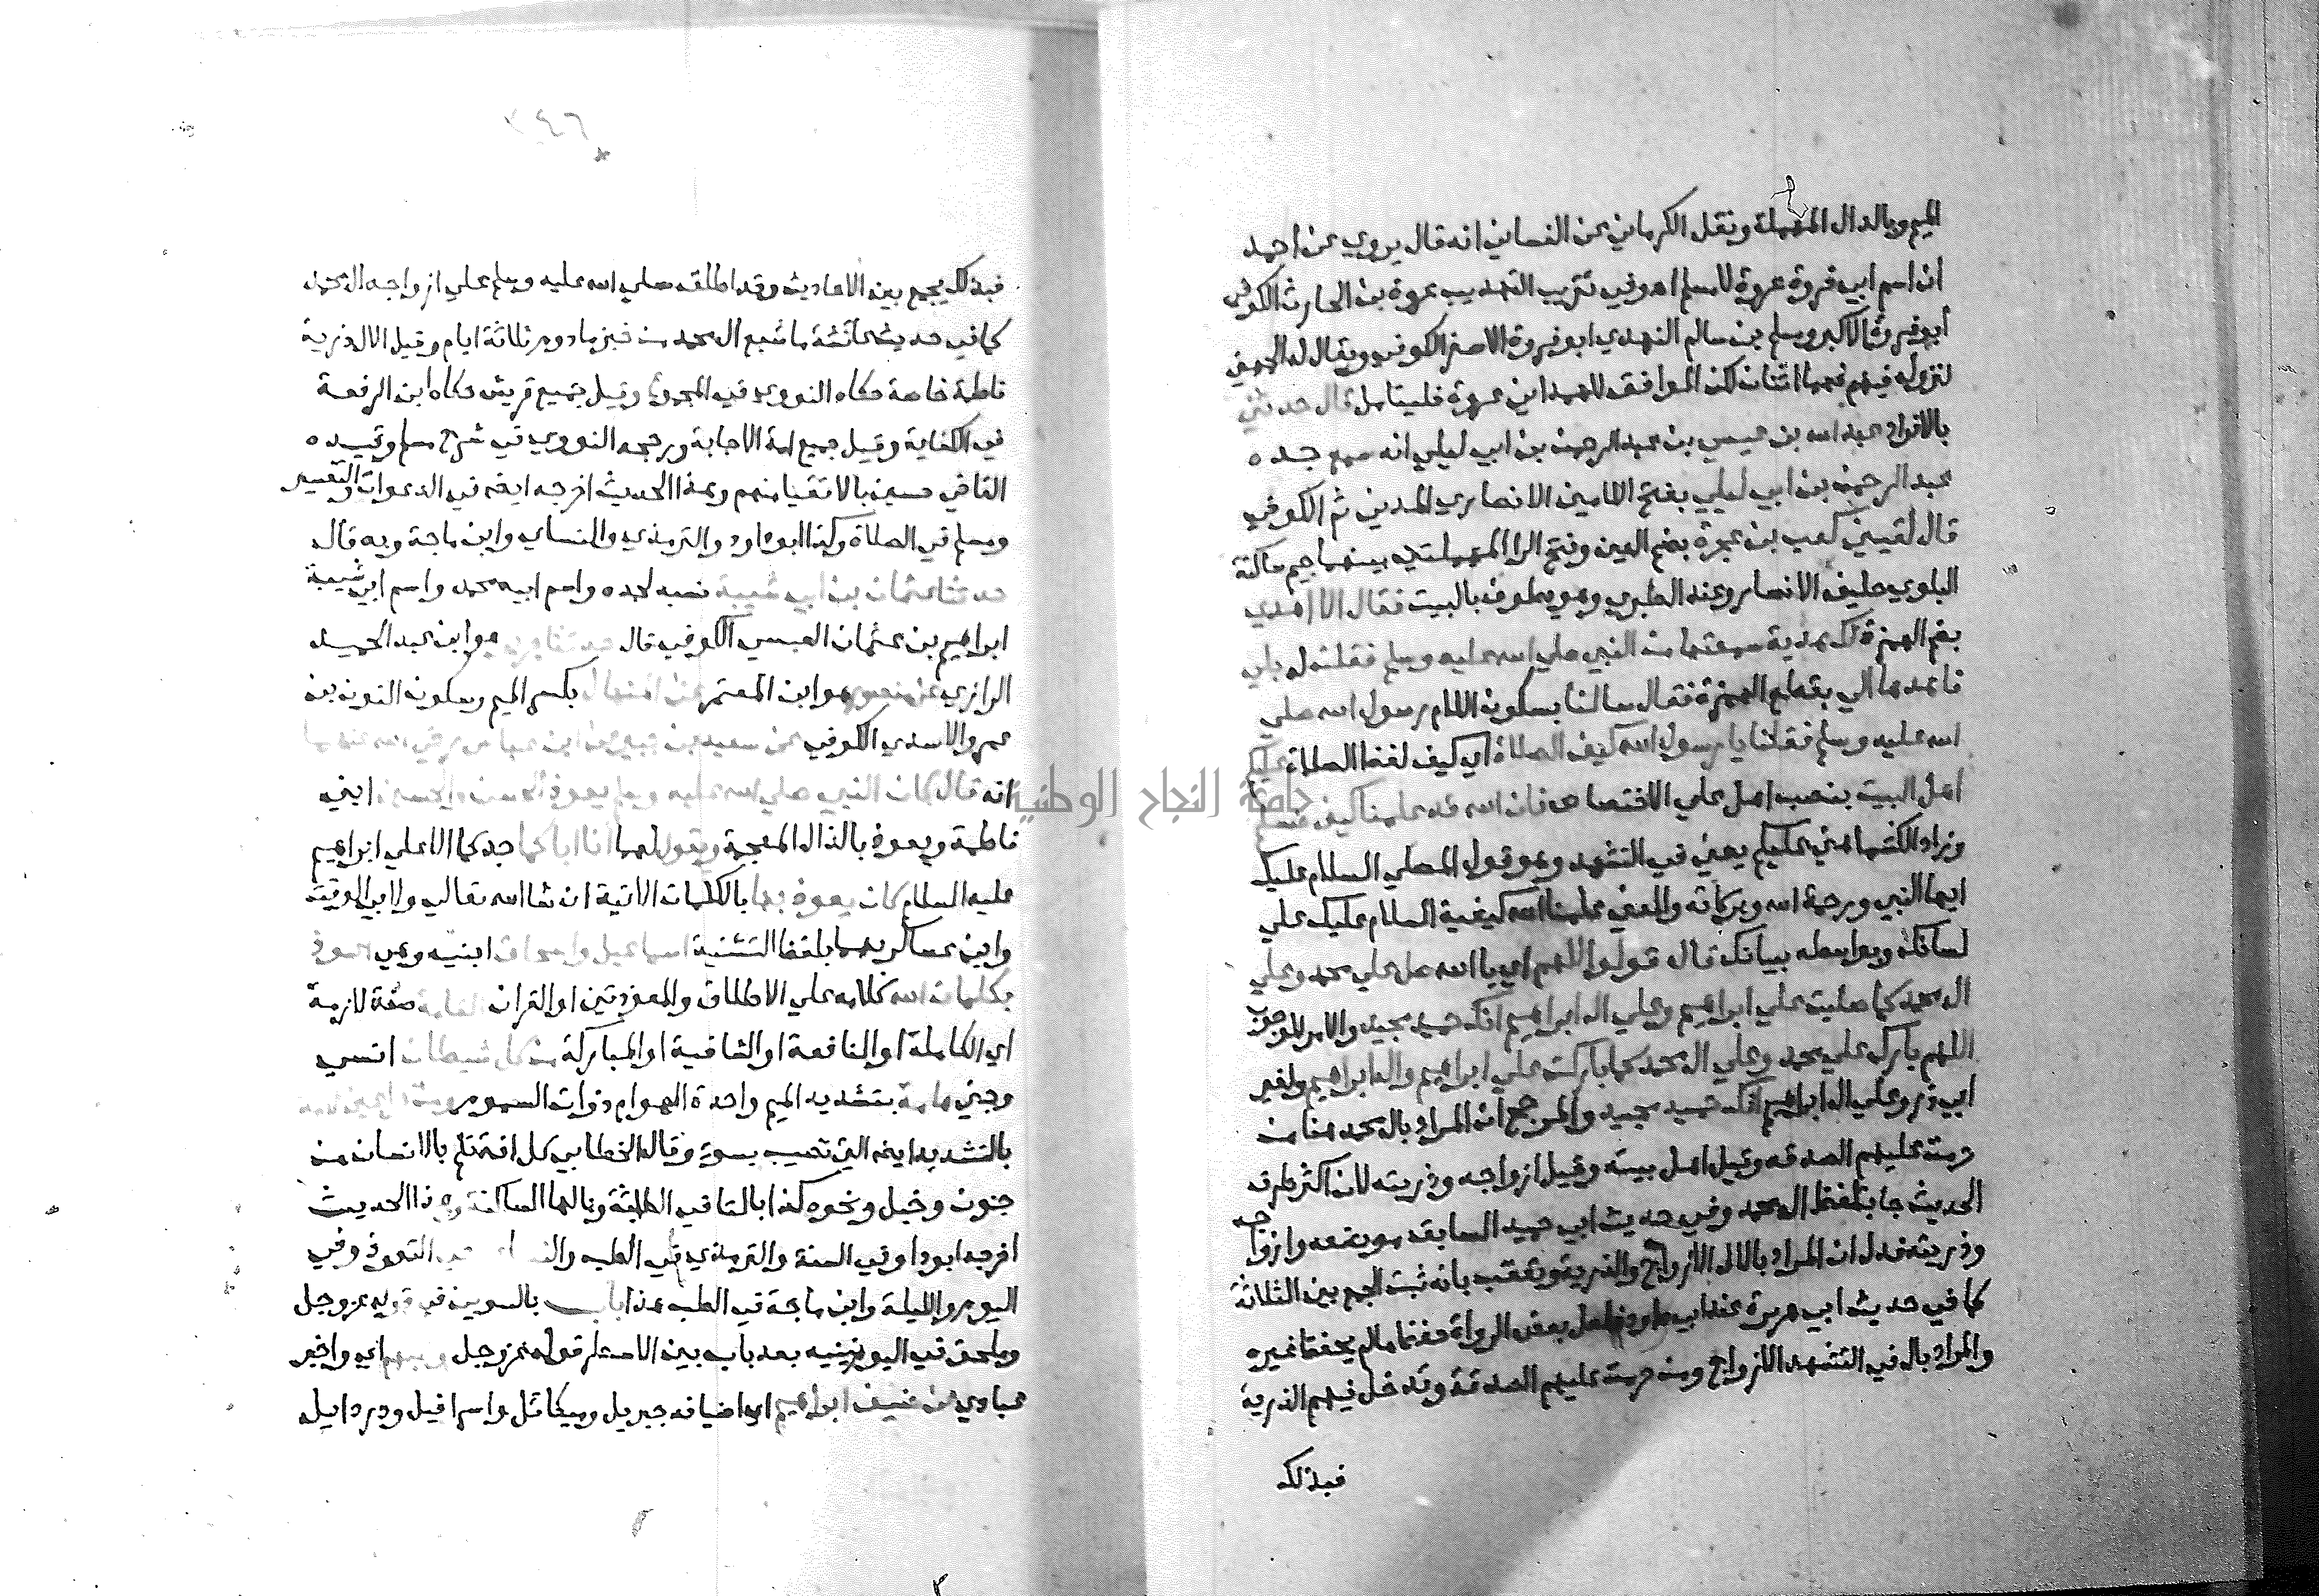 الميم وبالدال المهملة ونقل الكرماني عن الغساني انه قال يروي عن احمد
ان اسم ابي فروة عروة لا مسلم اه وفي تقريب التهذيب عروة بن الحارث الكوفي
أبو فروة الاكبر ومسلم بن سالم النهدي ابو فروة الاصغر الكوفي ويقال له الجهني
لنزوله فيهم فهما اثنان لكن الموافق للهمداني عروة فليتامل قال حدثني
بالافراد عبد الله بن عيسي بن عبد الرحمن بن ابي ليلي انه سمع جده
عبد الرحمن بن ابي ليلي بفتح اللامين الانصاري المدني ثم الكوفي
قال لقيني كعب بن عجرة بضم العين وفتح الرا المهملتين بينهما جيم ساكنة
البلوي حليف الانصار وعند الطبري وهو يطوف بالبيت فقال الا اهدي
بضم الهمزة لك هدية سمعتها من النبي صلي الله عليه وسلم فقلت له بلي
فاهدها الي بقطع الهمزة فقال سالنا بسكون اللام رسول الله صلي
الله عليه وسلم فقلنا يا رسول الله كيف الصلاة اي كيف لفظ الصلاة عليكم
اهل البيت بنصب اهل علي الاختصاص فان الله قد علمنا كيف نسلم
وزاد الكشميهني عليكم يعني في التشهد وهو قول المصلي السلام عليك
ايها النبي ورحمة الله وبركاته والمعني علمنا الله كيفية السلام عليك علي
لسانك وبواسطه بيانك قال قولوا اللهم اي يا الله صل علي محمد وعلي
ال محمد كما صليت علي ابراهيم وعلي ال ابراهيم انك حميد مجيد والامر للوجوب
اللهم بارك علي محمد وعلي ال محمد كما باركت علي ابراهيم وال ابراهيم ولغير
ابي ذر وعلي ال ابراهيم انك حميد مجيد والمرجح ان المراد بال محمد هنا من
حرمت عليهم الصدقه وقيل اهل بيته وقيل ازواجه وذريته لان اكثر طرق
الحديث جا بلفظ ال محمد وفي حديث ابي حميد السابق موضعه وازواجه
وذريته فدل ان المراد بالال الازواج والذرية وتعقب بانه ثبت الجمع بين الثلاثة
كما في حديث ابي هريرة عند ابي داود فلعل بعض الرواة حفظ ما لم يحفظ غيره
والمراد بال في التشهد الازواج ومن حرمت عليهم الصدقة وتدخل فيهم الذرية
فبذلك
٢٤٦
فبذلك يجمع بين الاحاديث وقد اطلق صلي الله عليه وسلم علي ازواجه ال محمد
كما في حديث عائشة ما شبع ال محمد من خبز مادوم ثلاثة ايام وقيل الال ذرية
فاطمة خاصة حكاه النووي في المجموع وقيل جميع قريش حكاه ابن الرفعة
في الكفاية وقيل جميع امة الاجابة ورجحه النووي في شرح مسلم وقيده
القاضي حسين بالاتقيا منهم وهذا الحديث اخرجه ايضه في الدعوات والتفسير
ومسلم في الصلاة وكذا ابو داود والترمذي والنساي وابن ماجة وبه قال
حدثنا عثمان بن ابي شيبة نسبه لجده واسم ابيه محمد واسم ابي شيبة
ابراهيم بن عثمان العبسي الكوفي قال حدثنا جرير هو ابن عبد الحميد
الرازي عن منصور هو ابن المعتمر عن المنهال بكسر الميم وسكون النون بن
عمرو الاسدي الكوفي عن سعيد بن جبير عن ابن عباس رضي الله عنهما
انه قال كان النبي صلي الله عليه وسلم يعوذ الحسن والحسين ابني
فاطمة ويعوذ بالذال المعجمة ويقول لهما ان اباكما جدكما الاعلي ابراهيم
عليه السلام كان يعوذ بها بالكلمات الاتية ان شا الله تعالي ولابي الوقت
وابن عساكر بهما بلفظ التثنية اسماعيل واسحاق ابنيه وهي اعوذ
بكلمات الله كلامه علي الاطلاق والمعوذتين او القران التامة صفة لازمة
اي الكاملة او النافعة او الشافية او المباركة من كل شيطان انسي
وجني هامة بتشديد الميم واحدة الهوام ذوات السموم ومن كل عين لامة
بالتشديد ايضه التي تصيب بسوء وقال الخطابي كل افة تلم بالانسان من
جنون وخبل ونحوه كذا بالتا في الثلاثة وبالها الساكنة وهذا الحديث
اخرجه ابو داو في السنة والترمذي في الطب والنساي في التعوذ وفي
اليوم والليلة وابن ماجة في الطب هذا باب بالتنوين في قوله عز وجل
وملحق في اليونينيه بعد باب بين الاسطر قوله عز وجل ونبيهم اي واخبر
عبادي عن ضيف ابراهيم اي اضيافه جبريل وميكائل واسرافيل ودردايل
جامعة النجاح الوطنية